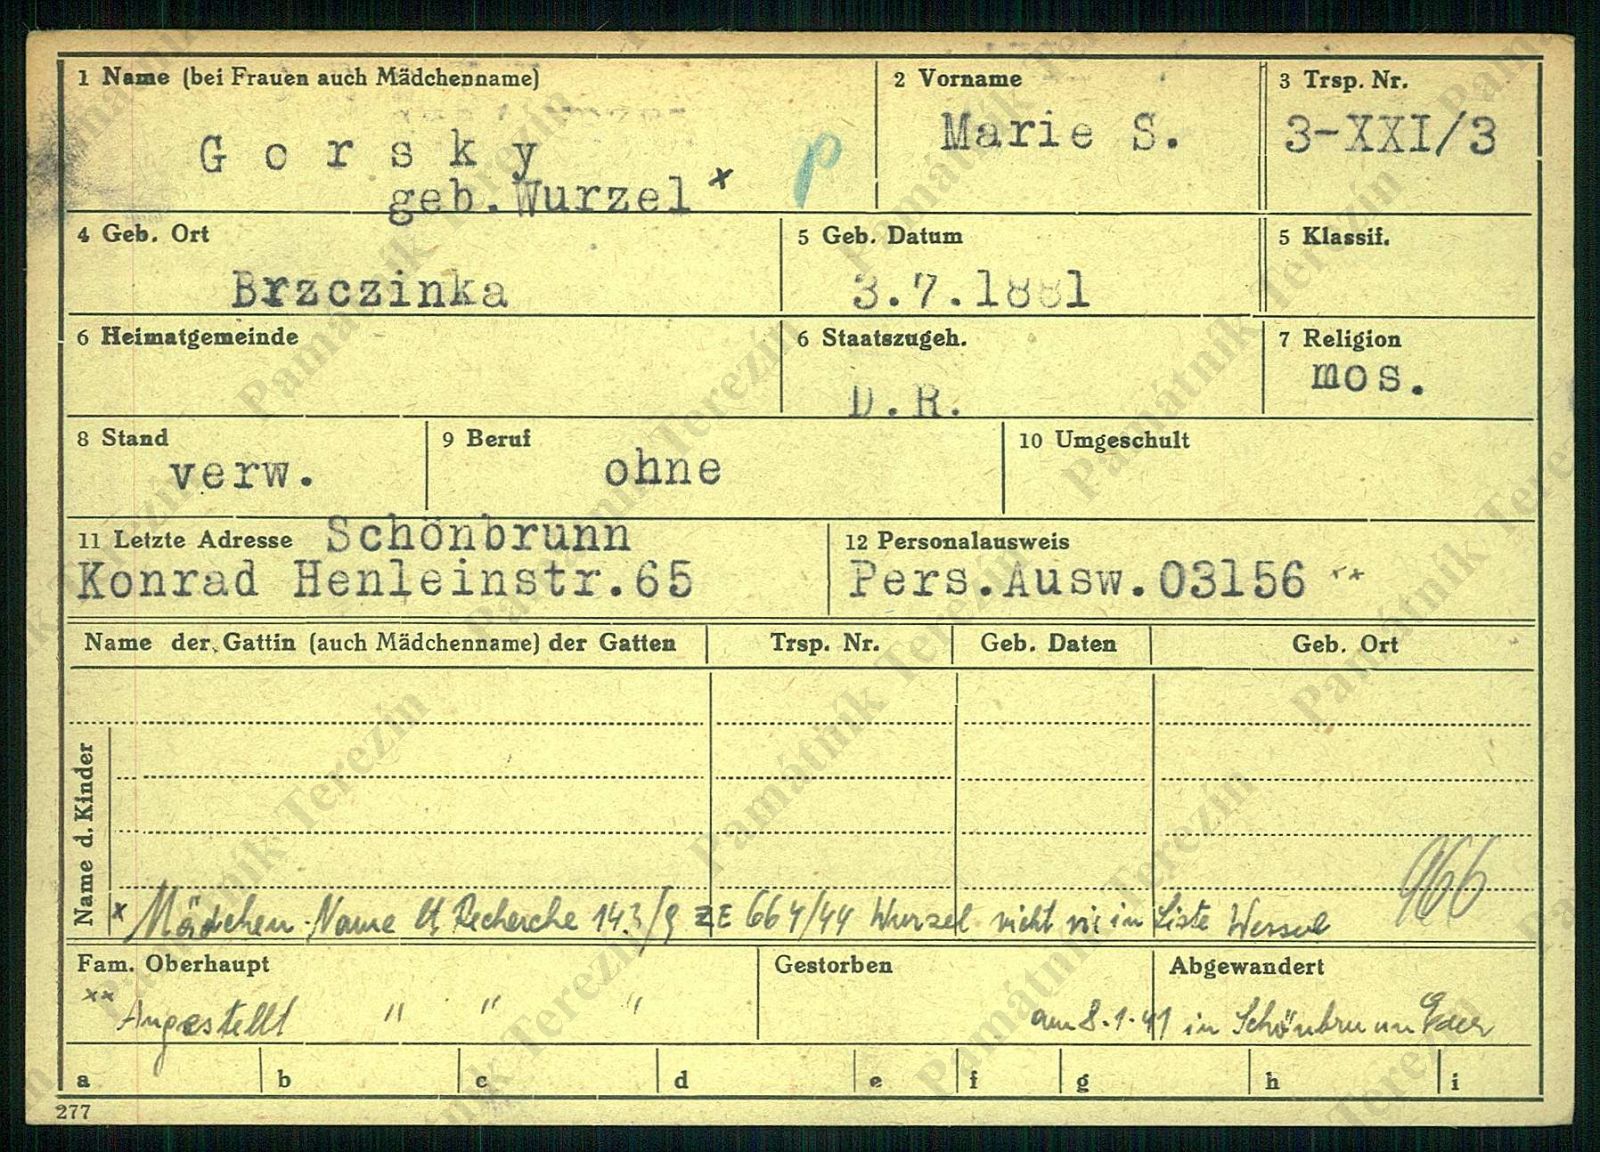 1 Name (bei Frauen auch Mädchenname)
2 Vorname
3 Trsp. Nr.
Gorsky
geb. Wurzel x
p
Marie S.
3-XXI/3
4 Geb. Ort
5 Geb. Datum
5 Klassif.
Brzczinka
3.7.1881
6 Heimatgemeinde
6 Staatszugeh.
7 Religion
D.R.
mos.
8 Stand
9 Beruf
10 Umgeschult
verw.
ohne
11 Letzte Adresse Schönbrunn
Konrad Henleinstr.65
12 Personalausweis
Pers.Ausw.03156 xx
Name der Gattin (auch Mädchenname) der Gatten
Trsp. Nr.
Geb. Daten
Geb. Ort
Name d. Kinder
966
x Mädchen-Name lt Recherche 143/9 ZE 664/44 Wurzel nicht in Liste
Fam. Oberhaupt
Gestorben
Abgewandert
xx Angestellt " " " am 8.1.41 in Schönbrunn
a b c d e f g h i
277
Památník Terezín